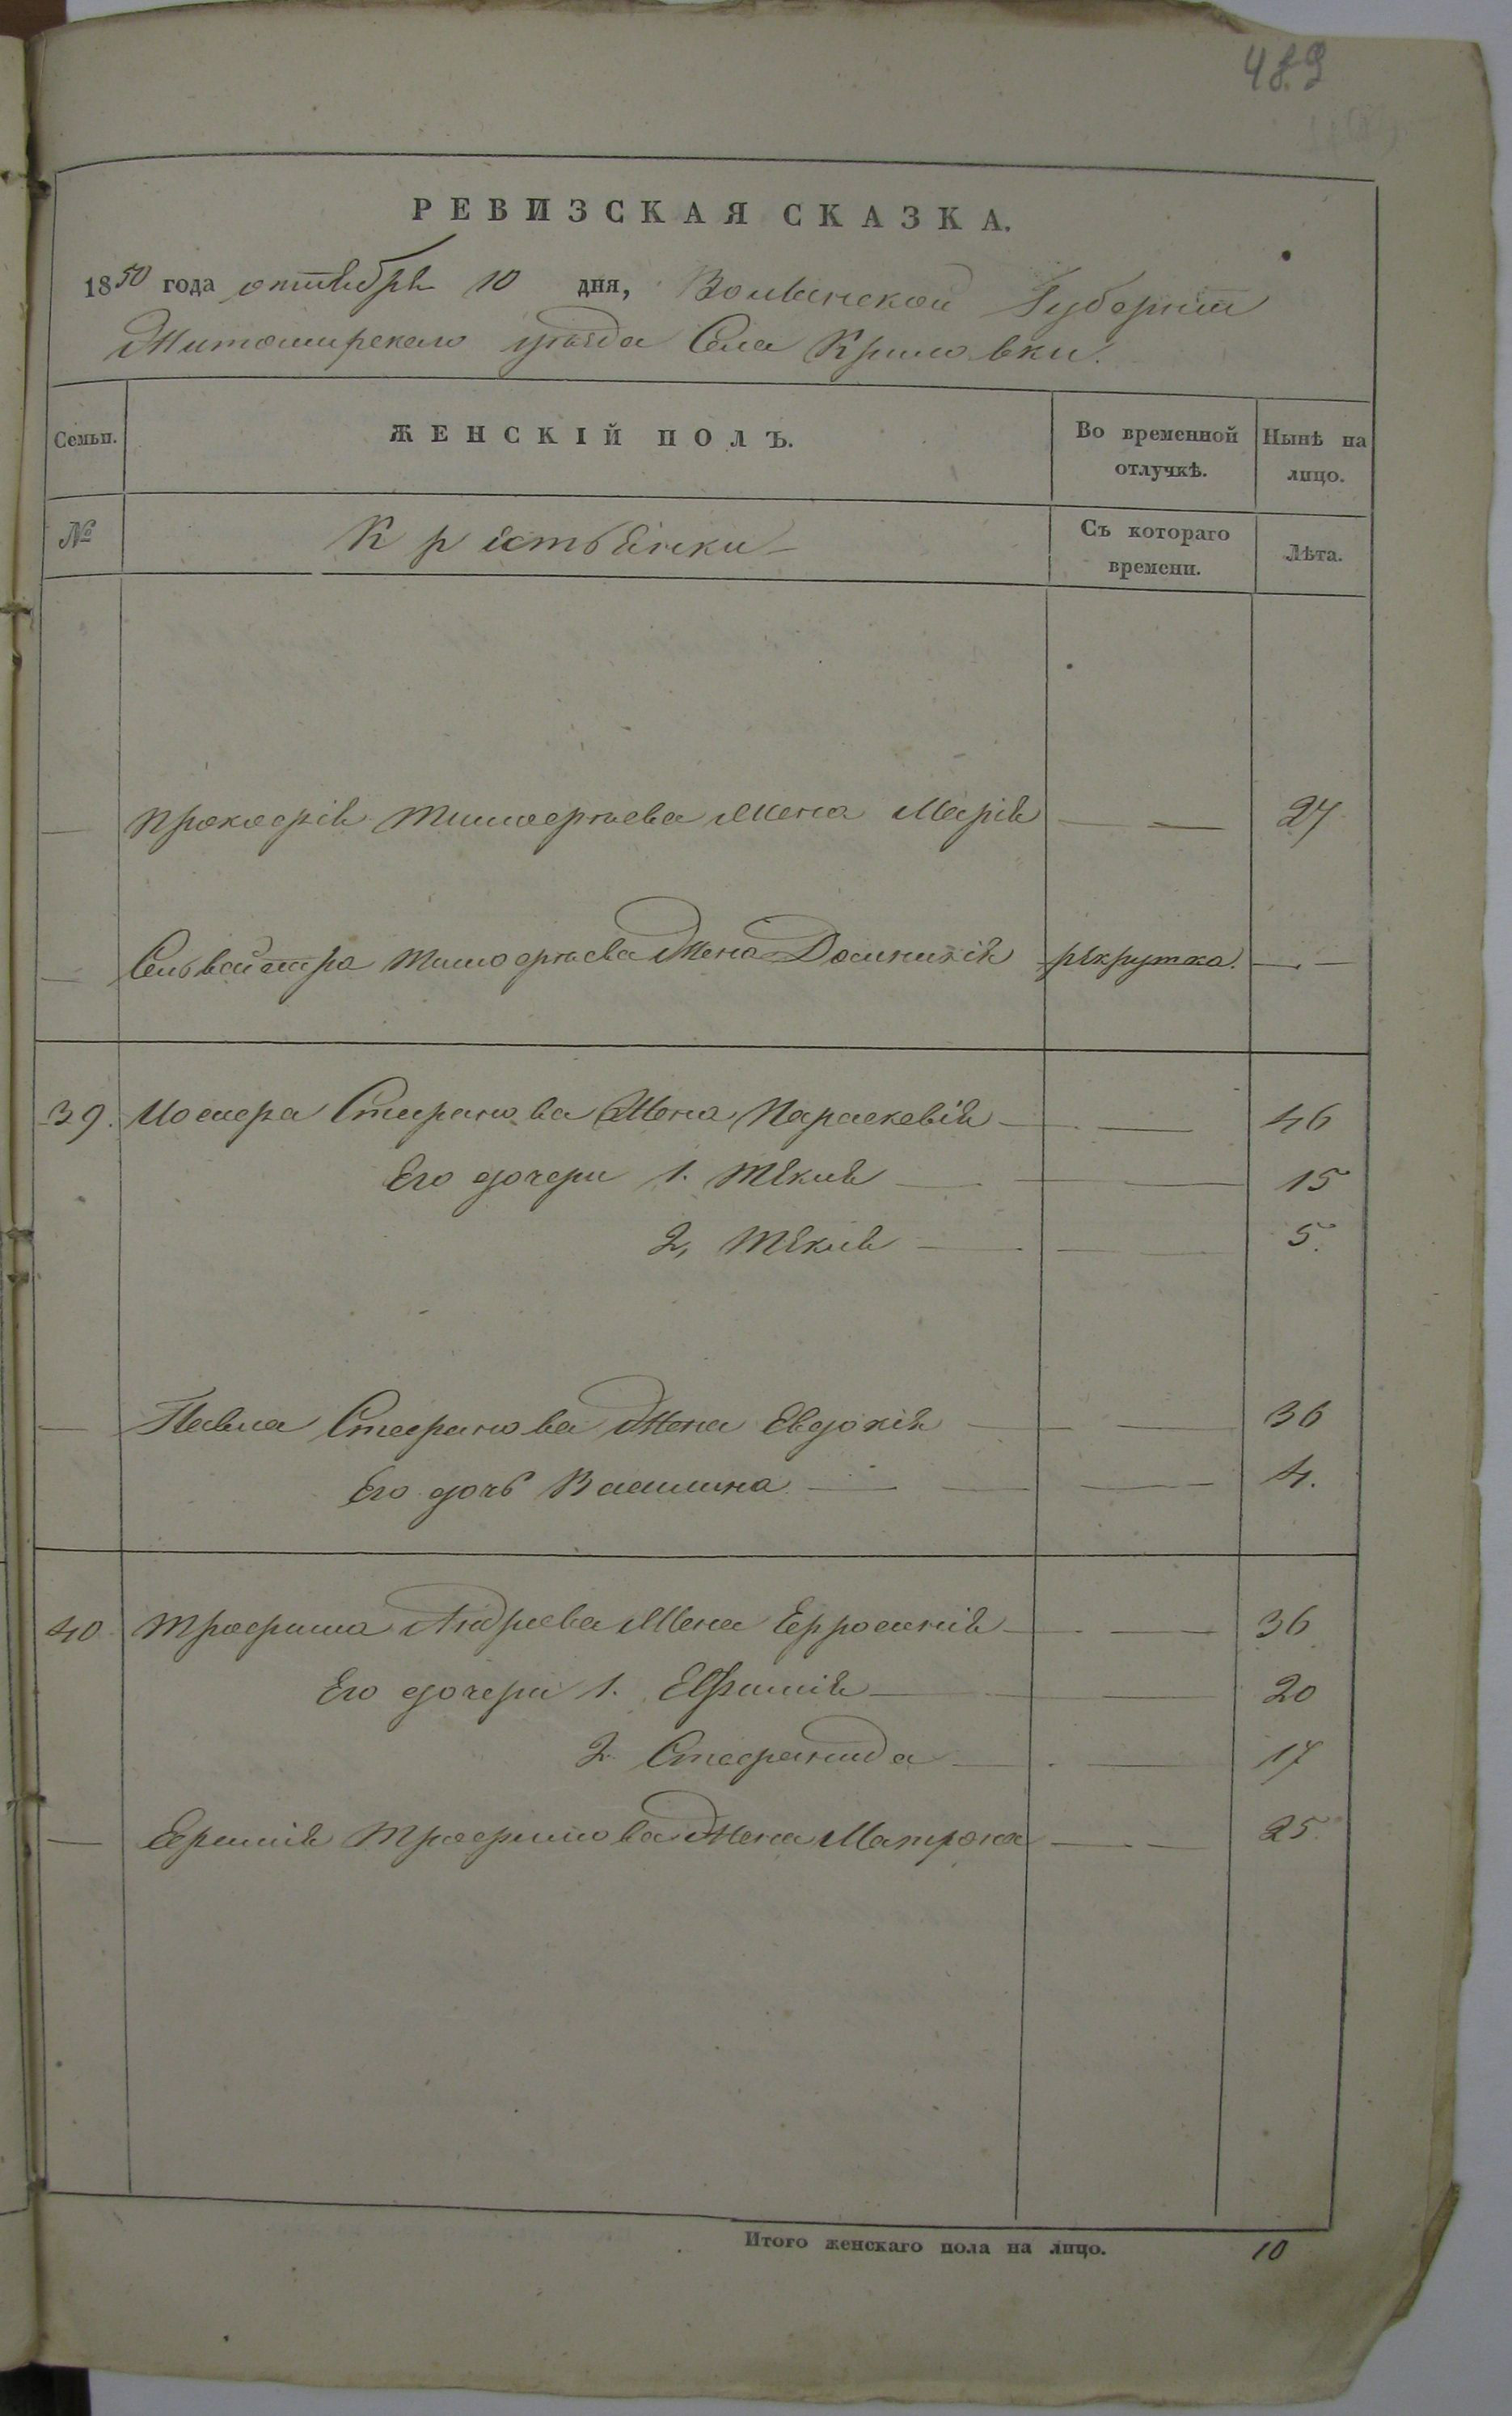 489
РЕВИЗСКАЯ СКАЗКА.
1850 года октября 10 дня, Волынской Губернии
Житомирскаго уѣзда Села Крыловки.
Семьи. ЖЕНСКІЙ ПОЛЪ. Во временной отлучкѣ. Нынѣ на лицо.
№ Крестьянки Съ котораго времени. Лѣта.
— Прокофія Тимофѣева Жена Марія — — 27
— Сильвестра Тимофѣева Жена Домникія рекрутка. — —
39. Иосифа Стефанова Жена Параскевія — — 46
Его дочери 1. Текля — — 15
2, Текля — — 5.
— Павла Стефанова Жена Евдокія — — 36
Его дочь Василина — — 4.
40. Трофима Андреева Жена Ефросинія — — 36
Его дочери 1. Евфимія — — 20
2. Стефанида — — 17
— Ефимія Трофимова Жена Матрона — — 25.
Итого женскаго пола на лицо. 10